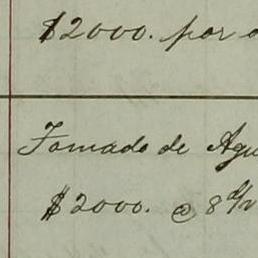 $2000. por
Tomado de
$2000. @ 8